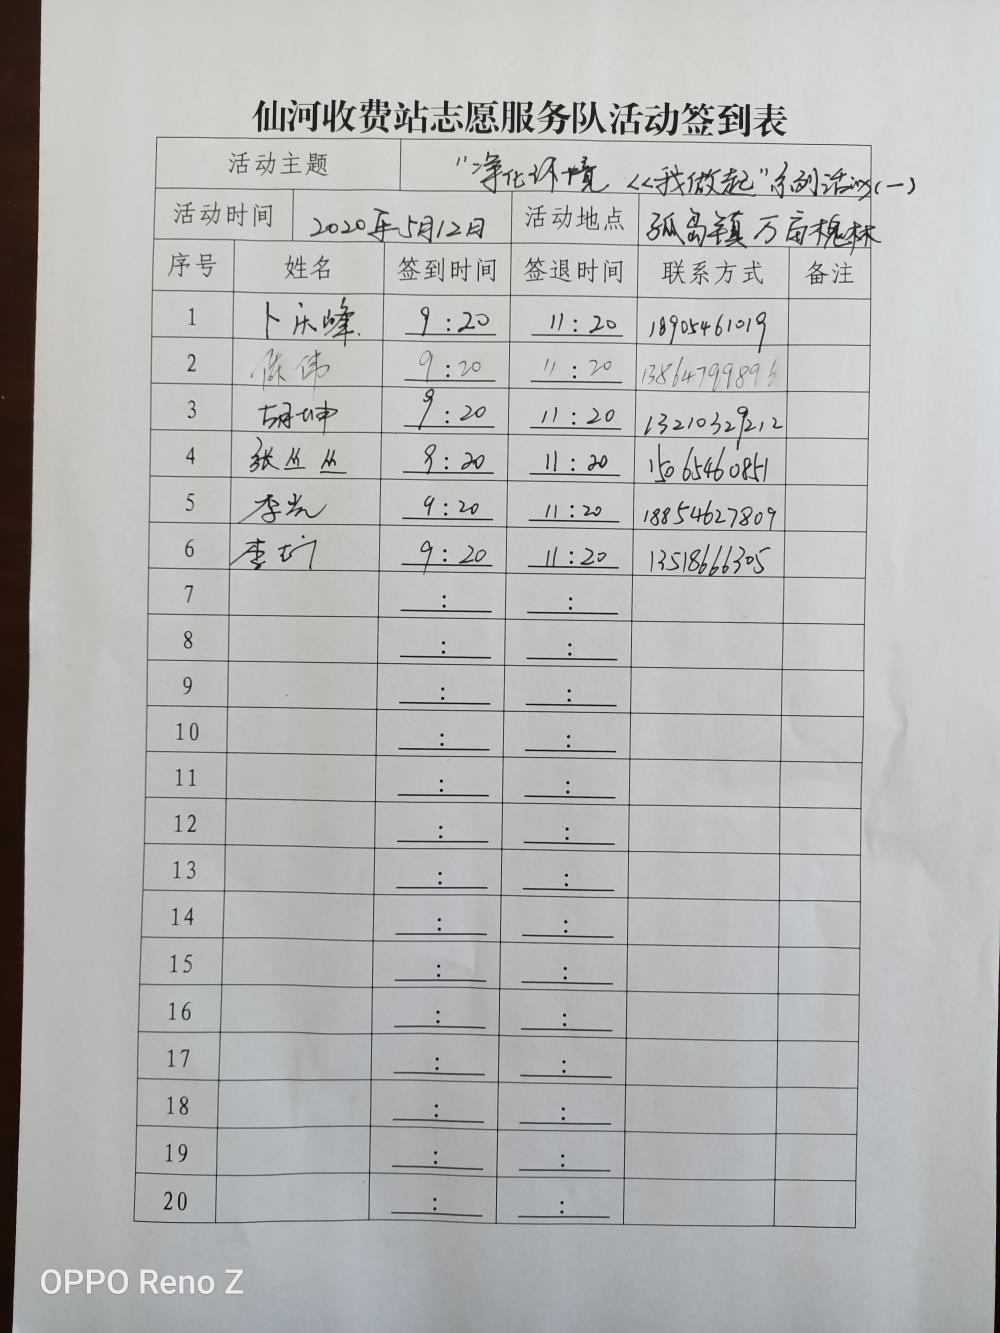 仙河收费站志愿服务队活动签到表
活动主题 "净化环境 从我做起"系列活动(一)
活动时间 2020年5月12日 活动地点 孤岛镇万亩槐林
序号 姓名 签到时间 签退时间 联系方式 备注
1 卜庆峰 9:20 11:20 18905461019
2 陈伟 9:20 11:20 13864799896
3 胡坤 9:20 11:20 13210329212
4 张丛丛 9:20 11:20 15065460851
5 李岚 9:20 11:20 18854627809
6 李 9:20 11:20 13518666305
7 : :
8 : :
9 : :
10 : :
11 : :
12 : :
13 : :
14 : :
15 : :
16 : :
17 : :
18 : :
19 : :
20 : :
OPPO Reno Z